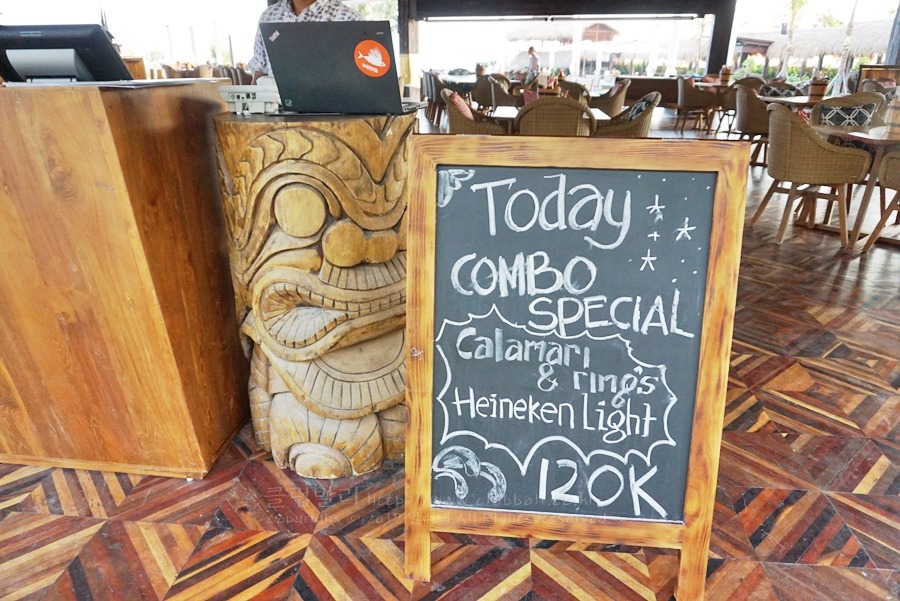 Today
COMBO
SPECIAL
Calamari
& ring's
Heineken Light
120K